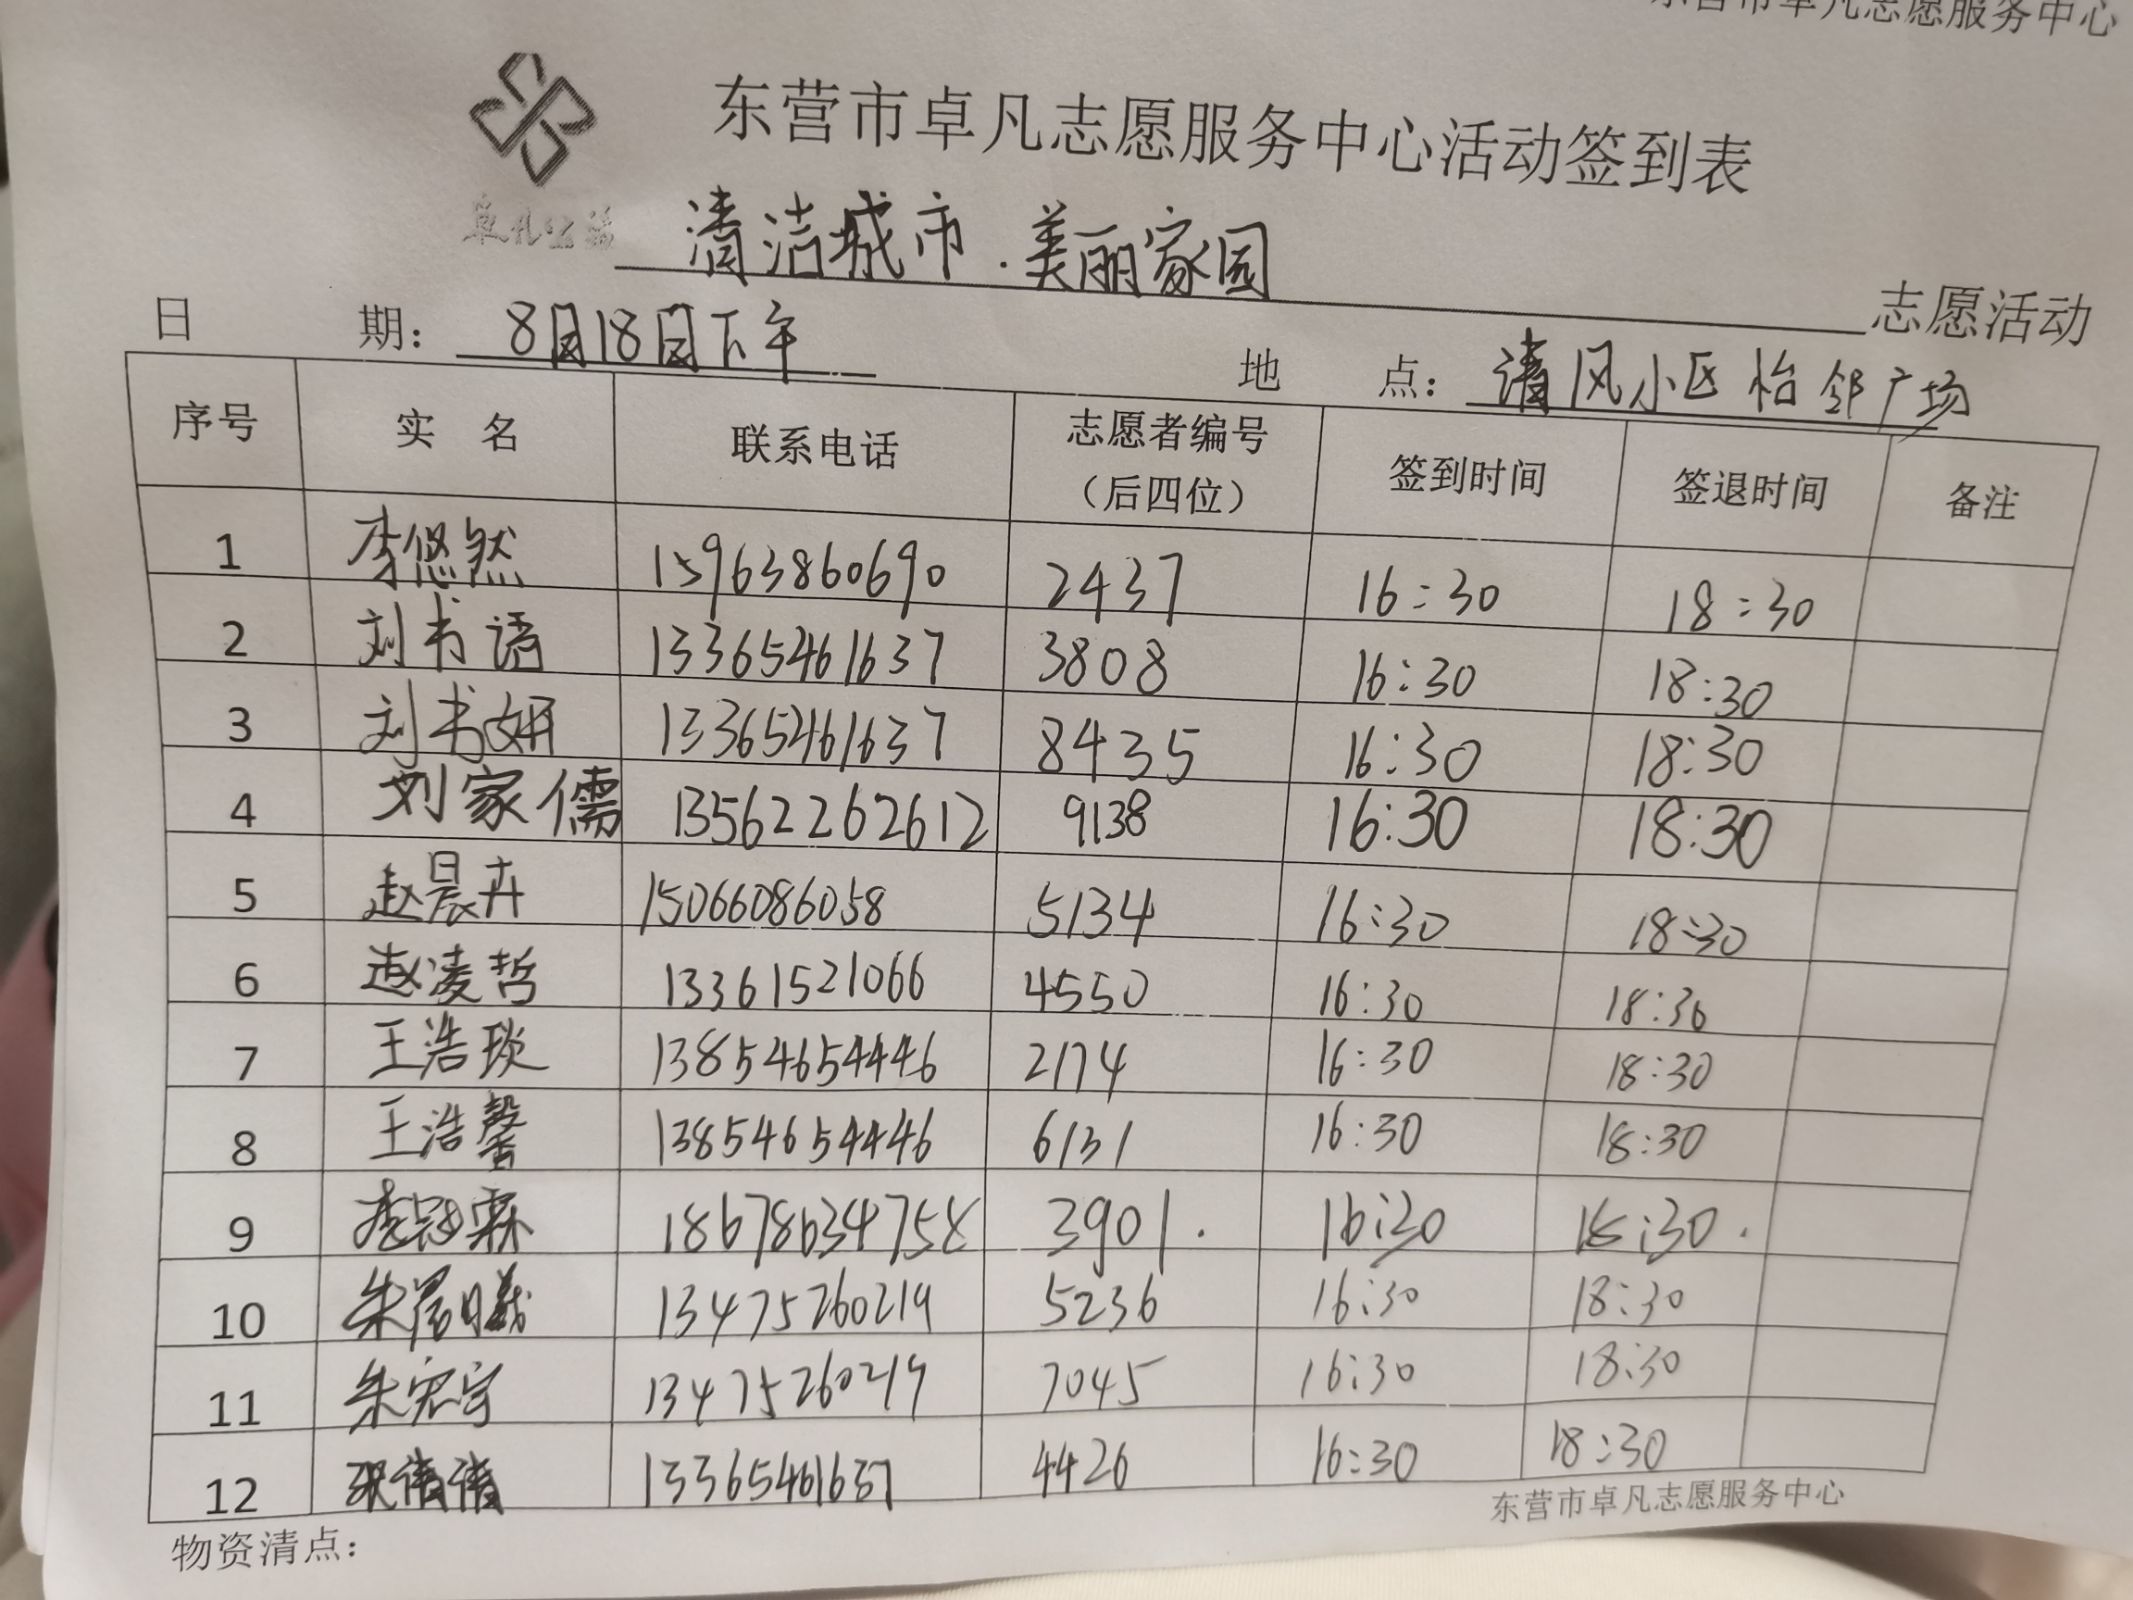 东营市卓凡志愿服务中心
东营市卓凡志愿服务中心活动签到表
卓凡公益
清洁城市.美丽家园 志愿活动
日 期： 8月18日下午 地 点： 清风小区怡邻广场
序号 实 名 联系电话 志愿者编号（后四位） 签到时间 签退时间 备注
1 李悠然 15963860690 2437 16:30 18:30
2 刘书语 13365461637 3808 16:30 18:30
3 刘书妍 13365461637 8435 16:30 18:30
4 刘家儒 13562262612 9138 16:30 18:30
5 赵晨卉 15066086058 5134 16:30 18:30
6 赵凌哲 13361521066 4550 16:30 18:30
7 王浩琰 13854654446 2174 16:30 18:30
8 王浩馨 13854654446 6131 16:30 18:30
9 李冠霖 18678634758 3901. 16:30 18:30.
10 朱晨曦 13475260219 5236 16:30 18:30
11 朱宏宇 13475260219 7045 16:30 18:30
12 倩倩 13365461637 4426 16:30 18:30
东营市卓凡志愿服务中心
物资清点：